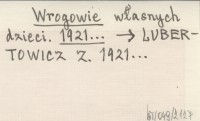 Wrogowie własnych
dzieci. 1921... → LUBER-
TOWICZ Z. 1921...